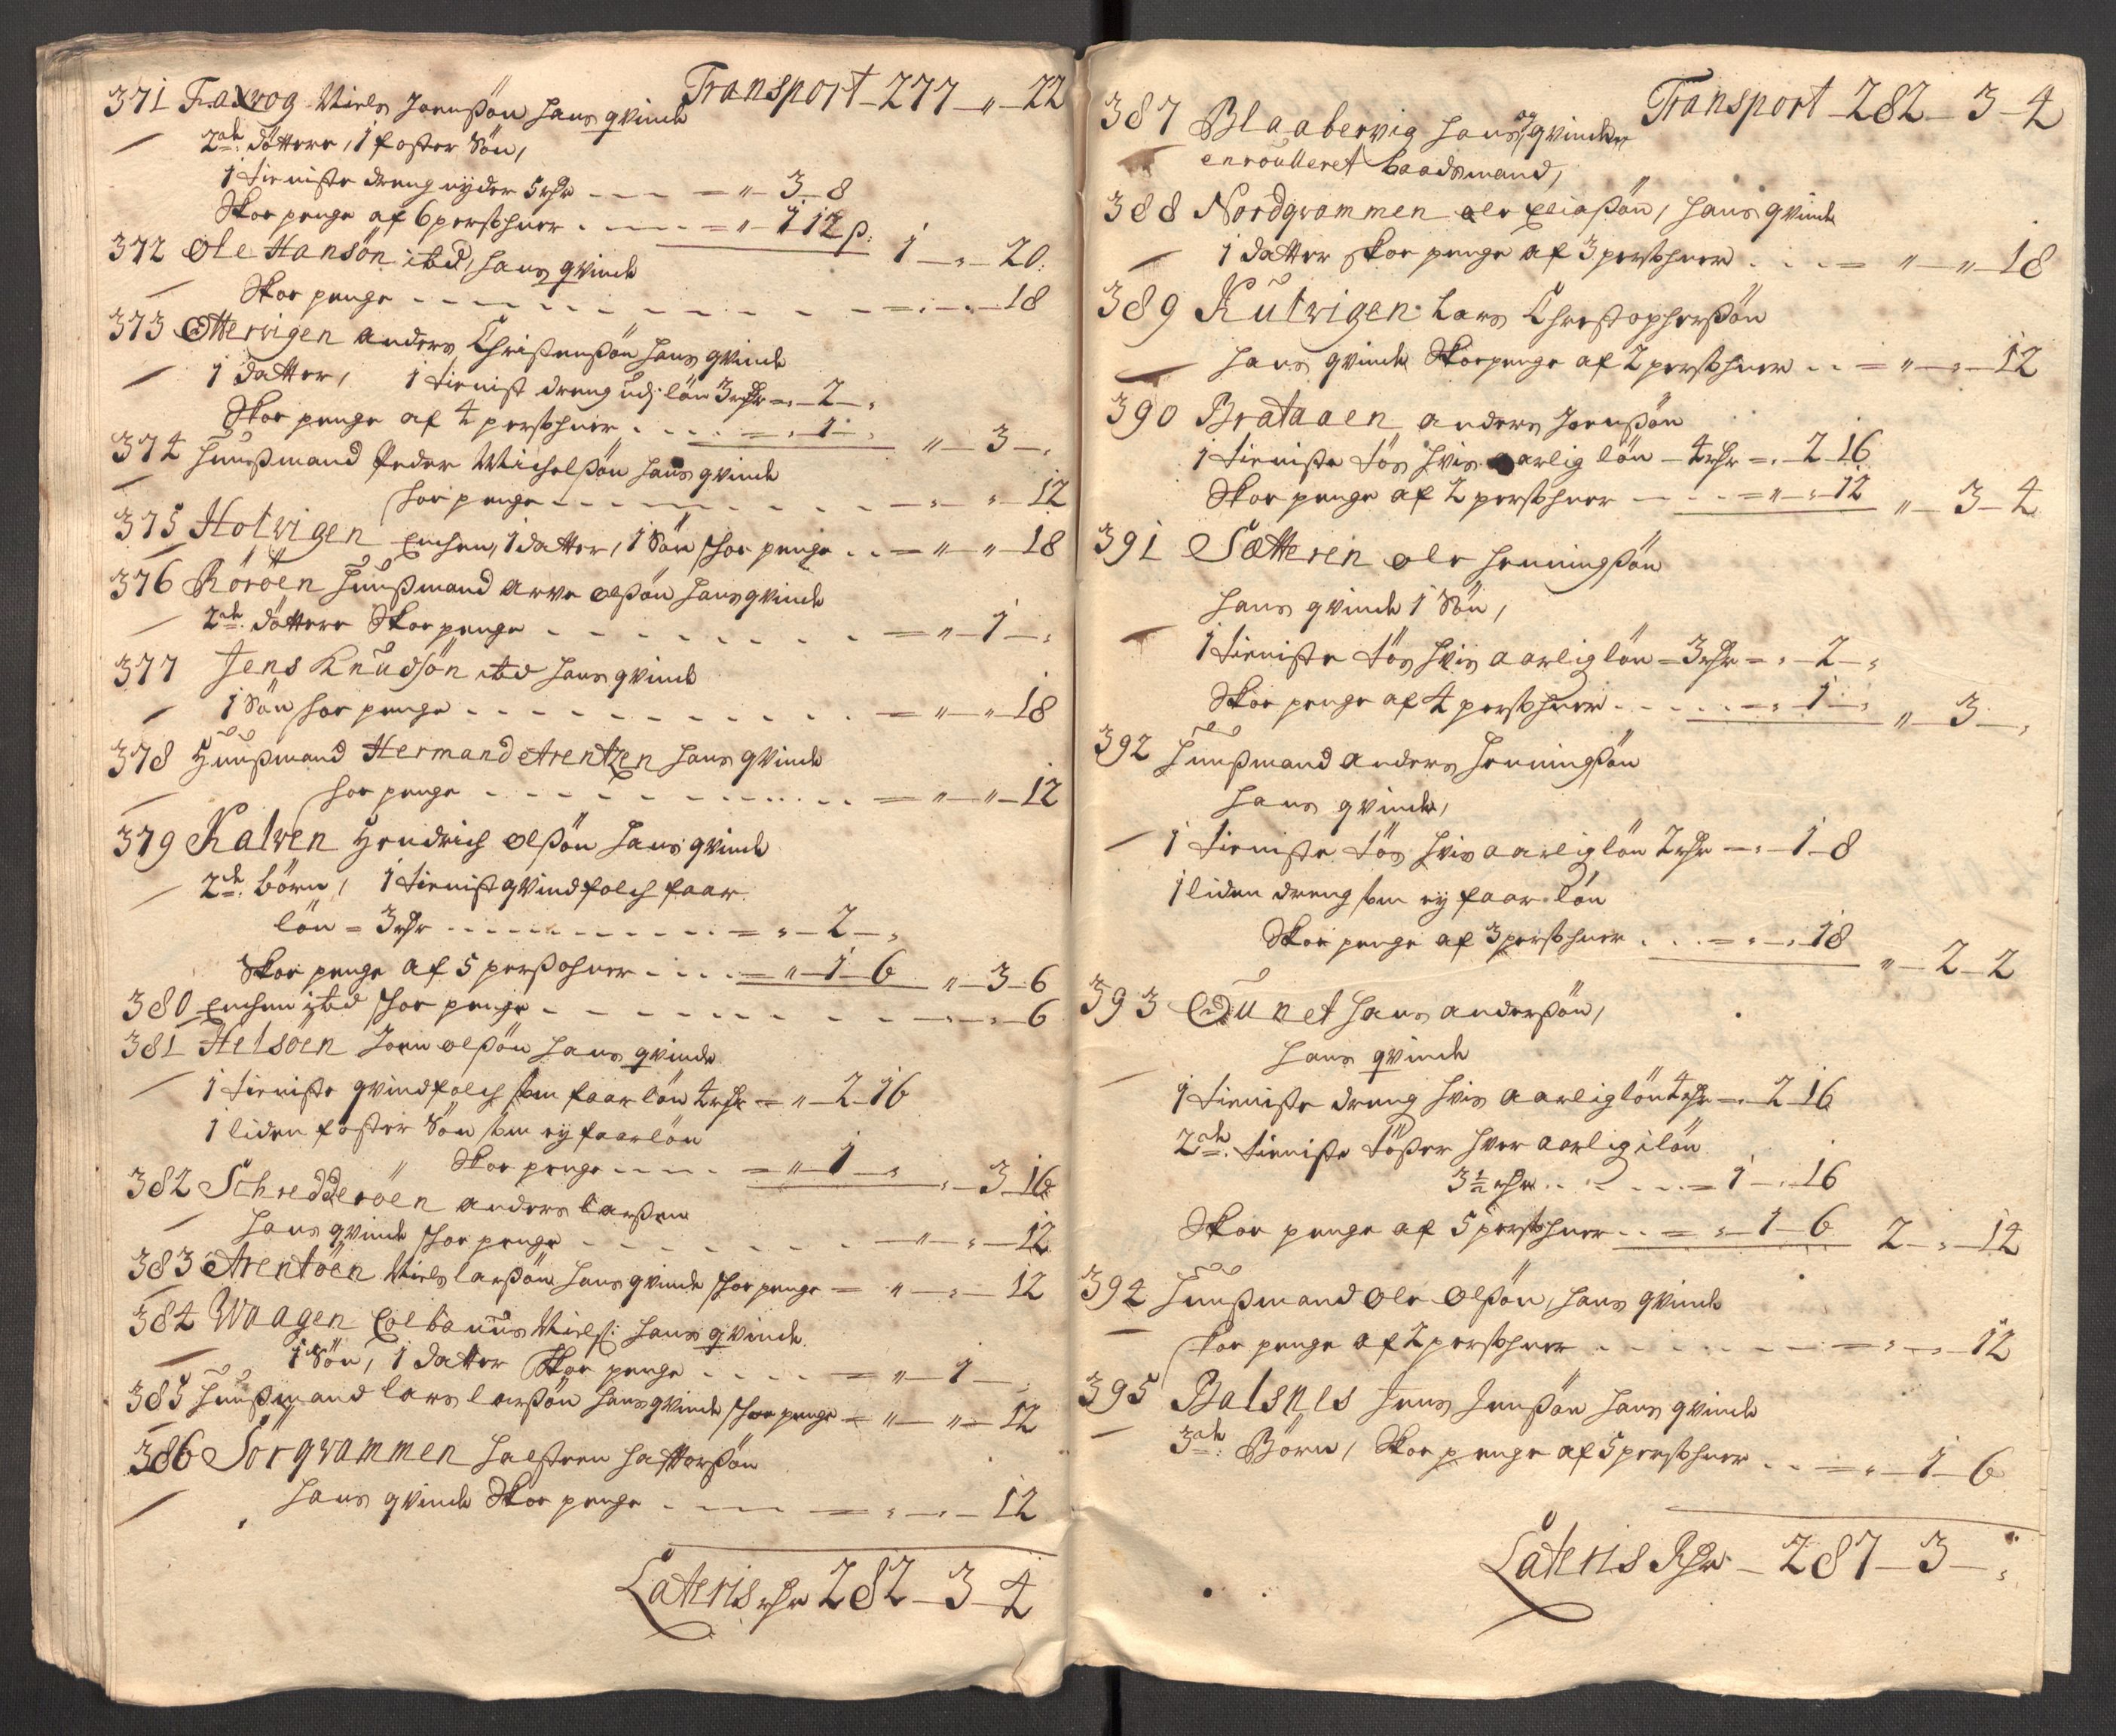 Transport - 277 - " - 22
371 Faxvog Niels Joenßøn hans qvinde
2de døttere, 1 foster Søn,
1 tieniste dreng nyder 5 rdr - - - = " - 3 - 8
Skoe penge af 6 persohner . - - - = " - 1 12 s:
1 - " - 20
372 Ole Hansøn ibd, hans qvinde
Skoe penge - - - - - - - - = " - " - 18
373 Ottervigen anders Christenßøn hans qvinde
1 datter, 1 tienist dreng udj løn 3 rdr = " - 2 - "
Skoe penge af 4 persohner . - - - = " 1 - " " - 3 - "
374 Huußmand Peder Michelßøn hans qvinde
skoe penge - - - - - - - - " - 12
375 Holvigen Enchen, 1 datter, 1 Søn skoe penge . . = " " - 18
376 Röröen Huußmand Arve Olßøn hans qvinde
2de døttere Skoe penge - - - - - - - = " - 1 - "
377 Jens Knudsøn ibd hans qvinde
1 Søn skoe penge - - - - - - - - = " - " 18
378 Huußmand Hermand Arentzen hans qvinde
skoe penge - - - - - - - - = " - " - 12
379 Kalven Hendrich Olßøn hans qvinde
2de børn, 1 tienist qvindfolch faar
løn = 3 rdr - - - - - - - = " - 2 - "
Skoe penge af 5 perßohner - - - = " - 1 - 6 " - 3 - 6
380 Enchen ibd skoe penge - - - - - - - - " - 6
381 Helsöen Joen olßøn hans qvinde
1 tieniste qvindfolch som faar løn 4 rdr = " - 2 - 16
1 liden foster Søn som ey faar løn
Skoe penge - - - - = " - 1 - " " - 3 16
382 Schredderöen anders Larßen
hans qvinde skoe penge - - - - - - - " - " - 12
383 Arentöen Niels Larßøn hans qvinde skoe penge = " - " - 12
384 Waagen Colbanus Nielß: hans qvinde
1 Søn, 1 datter Skoe penge - - - - = " - 1 - "
385 Huußmand Lars Larßøn hans qvinde skoe penge = " - " - 12
386 Sörqvammen Halsteen Hafftorßøn
hans qvinde Skoe penge - - - - = " - " - 12
Lateris rdr 282 - 3 - 4
Transport - 282 - 3 - 4
387 Blaabervig hans og qvinden
enroulleret baadsmand,
388 Nordqvammen ole Eliaßøn, hans qvinde
1 datter skoe penge af 3 persohner . . - = " - " - 18
389 Kulvigen Lars Christopherßøn
hans qvinde Skoepenge af 2 persohner . . = " - " - 12
390 Brataaen anders Joenßøn
1 tieniste tøs hvis aarlig løn - 4 rdr = " - 2 16
Skoe penge af 2 persohner - . . = " - " 12 " - 3 - 4
391 Sætteren ole Henningßøn
hans qvinde 1 Søn,
1 tieniste tøs hvis aarlig løn = 3 rdr = " - 2 - "
Skoe penge af 4 persohner . . - - = " 1 - " " - 3 - "
392 Huußmand anders Henningßøn
hans qvinde,
1 tieniste tøs hvis aarlig løn 2 rdr - " - 1 - 8
1 liden dreng som ey faar løn
Skoe penge af 3 persohner . . . = " - " 18 " - 2 - 2
393 Øunet hans anderßøn,
hans qvinde
1 tieniste dreng hvis aarlig løn 4 rdr = " 2 16
2de tieniste tößer hver aarlig i løn
3 1/2 rdr . . . . - . = 1 - " 16
Skoe penge af 5 persohner . . = " - 1 - 6 2 - " - 14
394 Huußmand Ole Olßøn, hans qvinde
skoe penge af 2 persohner . - - - - - = " - " - 12
395 Balsnes Jens Jenßøn hans qvinde
3de Børn, Skoe penge af 5 persohner . . = " - 1 - 6
Lateris Rdr - 287 - 3 - "